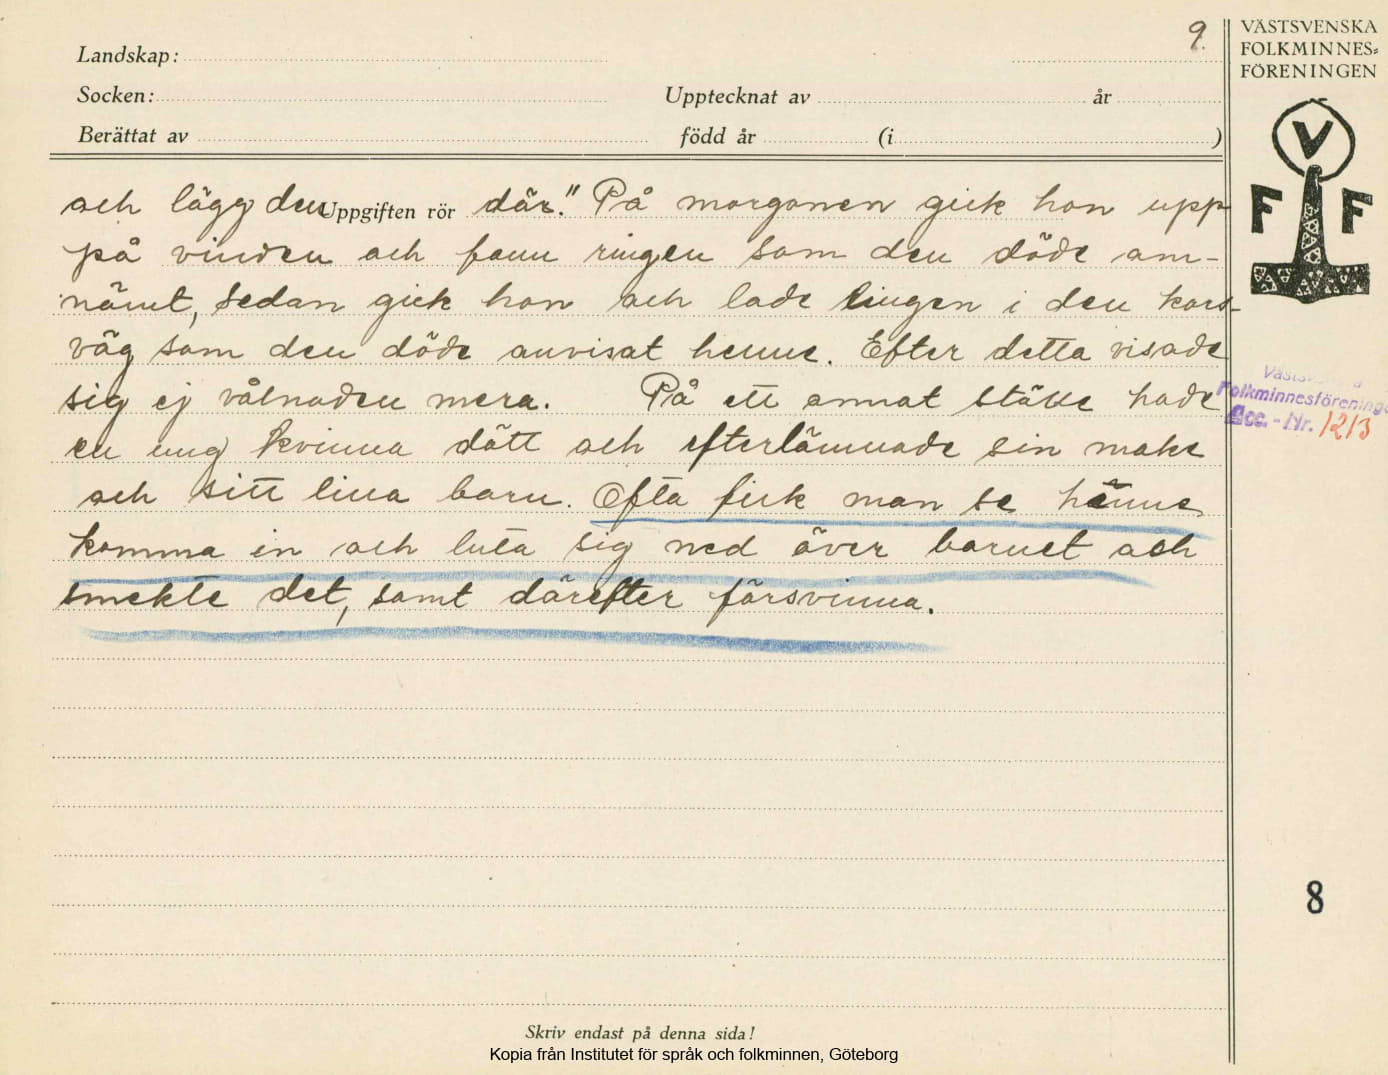 9.
VÄSTSVENSKA
FOLKMINNES=
FÖRENINGEN
Landskap:
Socken:
Upptecknat av
år
Berättat av
född år
(i
)
V
F F
och lägg den Uppgiften rör där." På morgonen gick hon upp
på vinden och fann ringen som den döde om-
nämt, sedan gick hon och lade ringen i den kors-
väg som den döde anvisat henne. Efter detta visade
sig ej vålnaden mera. På ett annat ställe hade
en ung kvinna dött och efterlämnade sin make
och sitt lilla barn. Ofta fick man se henne
komma in och luta sig ned över barnet och
smekte det, samt därefter försvinna.
Folkminnesförening
Acc. - Nr. 1213
8
Skriv endast på denna sida!
Kopia från Institutet för språk och folkminnen, Göteborg